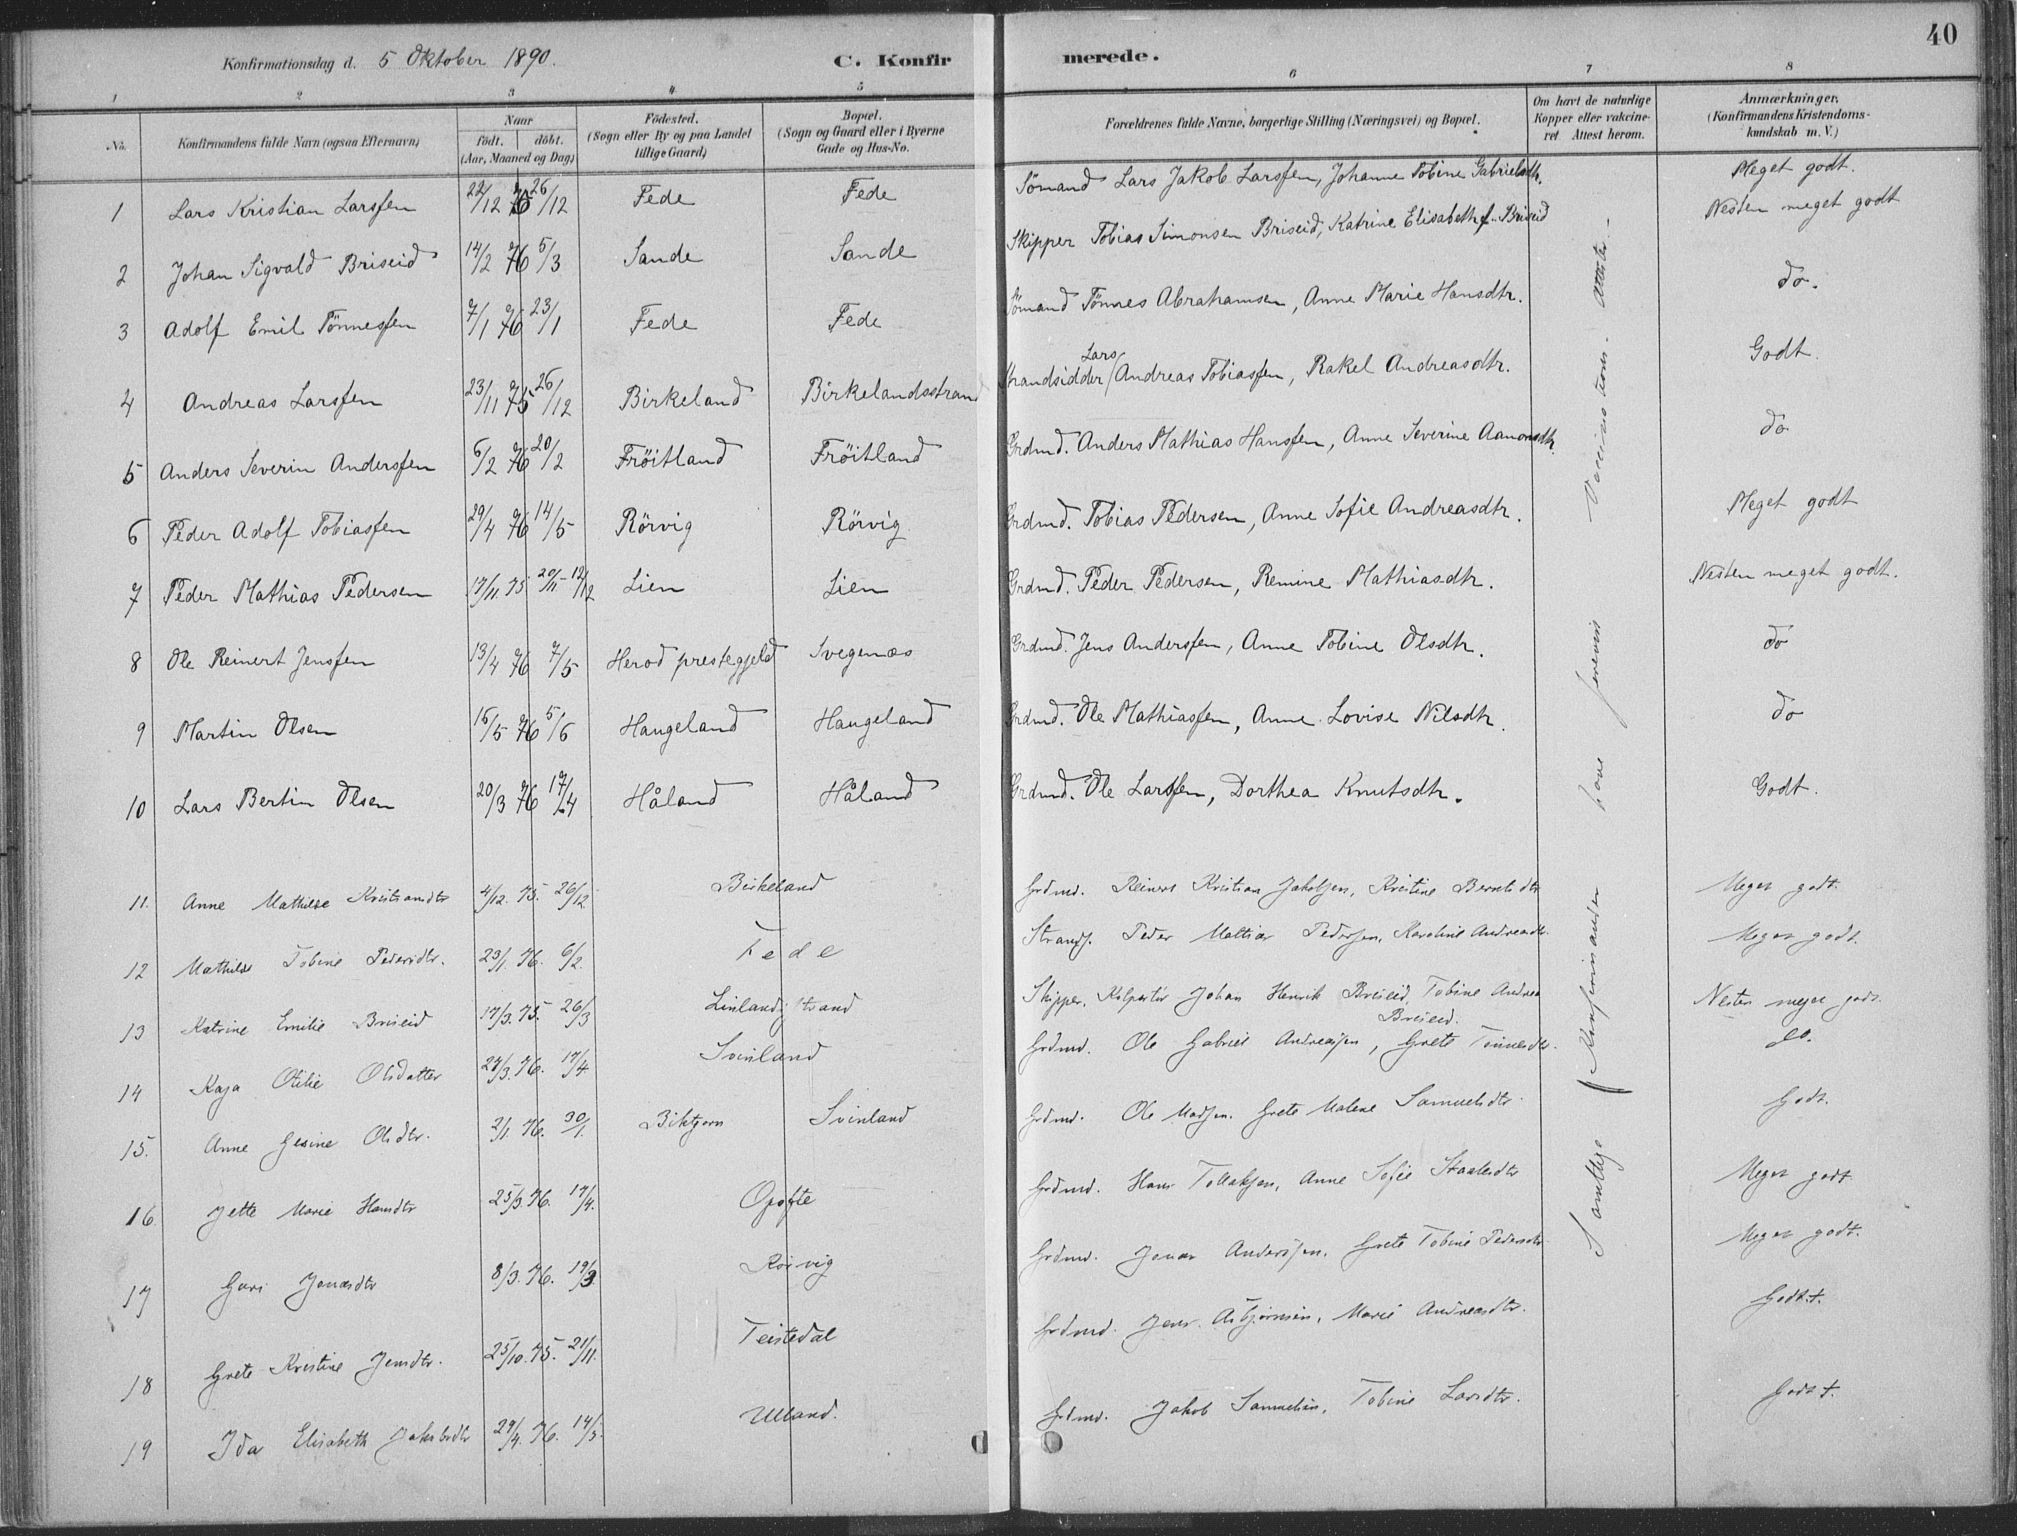 40
Konfirmationsdag d. 5 Oktober 1890. C. Konfirmerede.
1 2 3 4 5 6 7 8
No. Konfirmandens fulde Navn (ogsaa Efternavn) Naar födt. döbt. (Aar, Maaned og Dag) Födested. (Sogn eller By og paa Landet tillige Gaard) Bopæl. (Sogn og Gaard eller i Byerne Gade og Hus-No. Forældrenes fulde Navne, borgerlige Stilling (Næringsvei) og Bopæl. Om havt de naturlige Kopper eller vakcineret Attest herom. Anmærkninger, (Konfirmandens Kristendomskundskab m. V.)
1 Lars Kristian Larssen 22/12 75 26/12 Fede Fede Sömand Lars Jakob Larssen, Johanne Tobine Gabrielsdtr. Meget godt.
2 Johan Sigvald Briseid 14/2 76 5/3 Sande Sande Skipper Tobias Simonsen Briseid, Katrine Elisabeth f. Briseid Nesten meget godt
3 Adolf Emil Tönnessen 7/1 76 23/1 Fede Fede Sömand Tönnes Abrahamsen, Anne Marie Hansdtr. do.
4 Andreas Larssen 23/11 75 26/12 Birkeland Birkelandsstrand Strandsidder Lars Andreas Tobiassen, Rakel Andreasdtr. Godt.
5 Anders Severin Anderssen 6/2 76 20/2 Fröitland Fröitland Grdmd. Anders Mathias Hanssen, Anne Severine Aanonsdtr. do
6 Peder Adolf Tobiassen 29/4 76 14/5 Rörvig Rörvig Grdmd. Tobias Pedersen, Anne Sofie Andreasdtr. Meget godt
7 Peder Mathias Pedersen 17/11 75 20/11 - 12/12 Lien Lien Grdmd. Peder Pedersen, Remine Mathiasdtr. Nesten meget godt.
8 Ole Reinert Jenssen 13/4 76 7/5 Herod prestegjeld Svegenæs Grdmd. Jens Anderssen, Anne Tobine Olsdtr. do
9 Martin Olsen 16/5 76 5/6 Haugeland Haugeland Grdmd. Ole Mathiassen, Anne Lovise Nilsdtr. do
10 Lars Bertin Olsen 20/3 76 17/4 Håland Håland Grdmd. Ole Larssen, Dorthea Knutsdtr. Godt.
11. Anne Mathilde Kristiansdtr 4/12. 75. 26/12. Birkeland Grdmd. Reinert Kristian Jakobsen, Kristine Berntsdtr Meget godt.
12 Mathilde Tobine Pedersdtr. 23/1. 76. 6/2. Fede Strands. Peder Mathias Pedersen, Karoline Andreasdtr. Meget godt.
13 Katrine Emilie Briseid 17/3. 75. 26/3 Linlandsstrand Skipper, Kolportör Johan Henrik Briseid, Tobine Andrea Briseid. Nesten meget godt.
14 Kaja Otilie Olsdatter 27/3. 76. 17/4. Svinland Grdmd. Ole Gabriel Andreassen, Grete Tönnesdtr. do.
15. Anne Gesine Olsdtr. 2/1. 76. 30/1. Birktjern Svinland Grdmd. Ole Madsen. Grete Malene Samuelsdtr. Godt.
16 Jette Marie Hansdtr 25/3. 76. 17/4. Opofte Grdmd. Hans Tollaksen, Anne Sofie Staalesdtr Meget godt
17 Guri Jonasdtr 8/3. 76. 19/3. Rörvig Grdmd. Jonas Anderssen. Grete Tobine Pedersdtr Meget godt.
18 Grete Kristine Jensdtr. 25/10. 75. 21/11. Teistedal Grdmd. Jens Asbjørnsen, Marie Andreasdtr. Godt.
19 Ida Elisabeth Jakobsdtr 29/4. 76. 14/5. Ulland. Grdmd. Jakob Samuelsen, Tobine Larsdtr. Godt.
Samtlige Konfirmander have forevist Vaccinations-Attester.